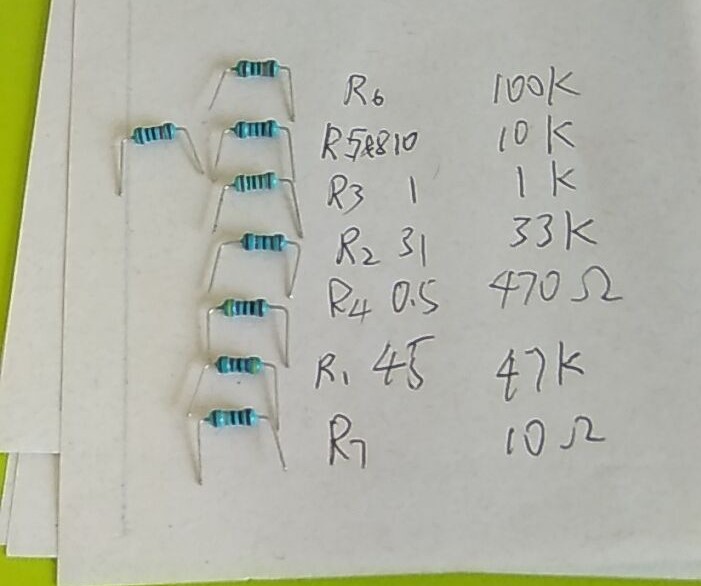 R6 100K
R5&8 10 10K
R3 1 1K
R2 31 33K
R4 0.5 470Ω
R1 45 47K
R7 10Ω